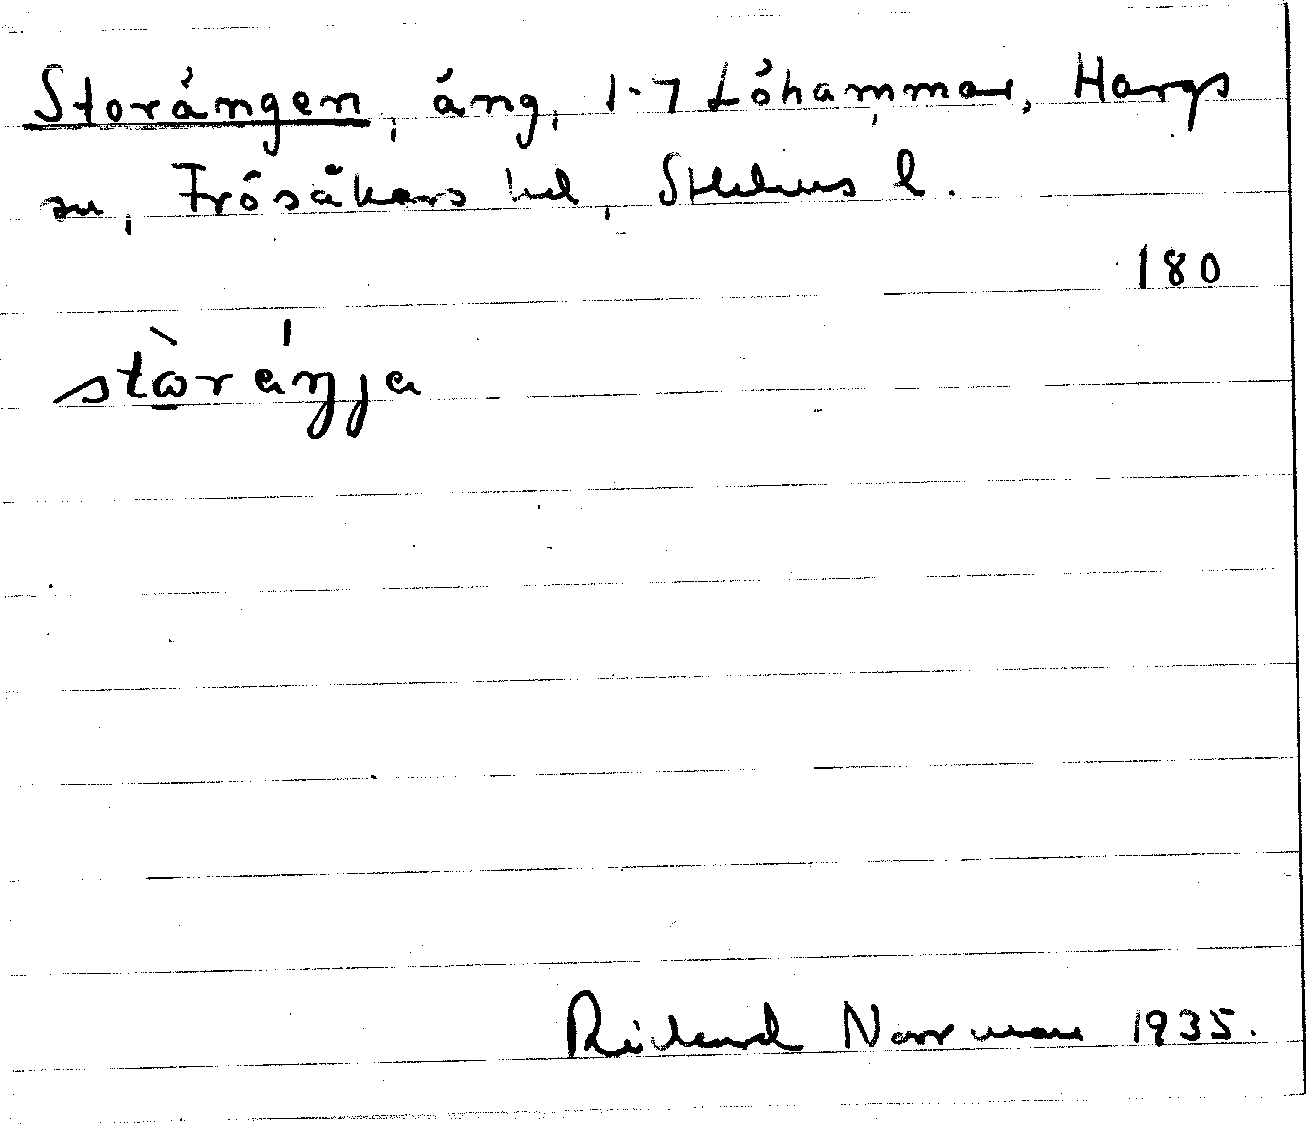 Storängen, äng, 1-7 Löhammar, Hargs
sn, Frösåkers hd, Sthlms l.
180
stòrä́ŋja
Richard Norrman 1935.